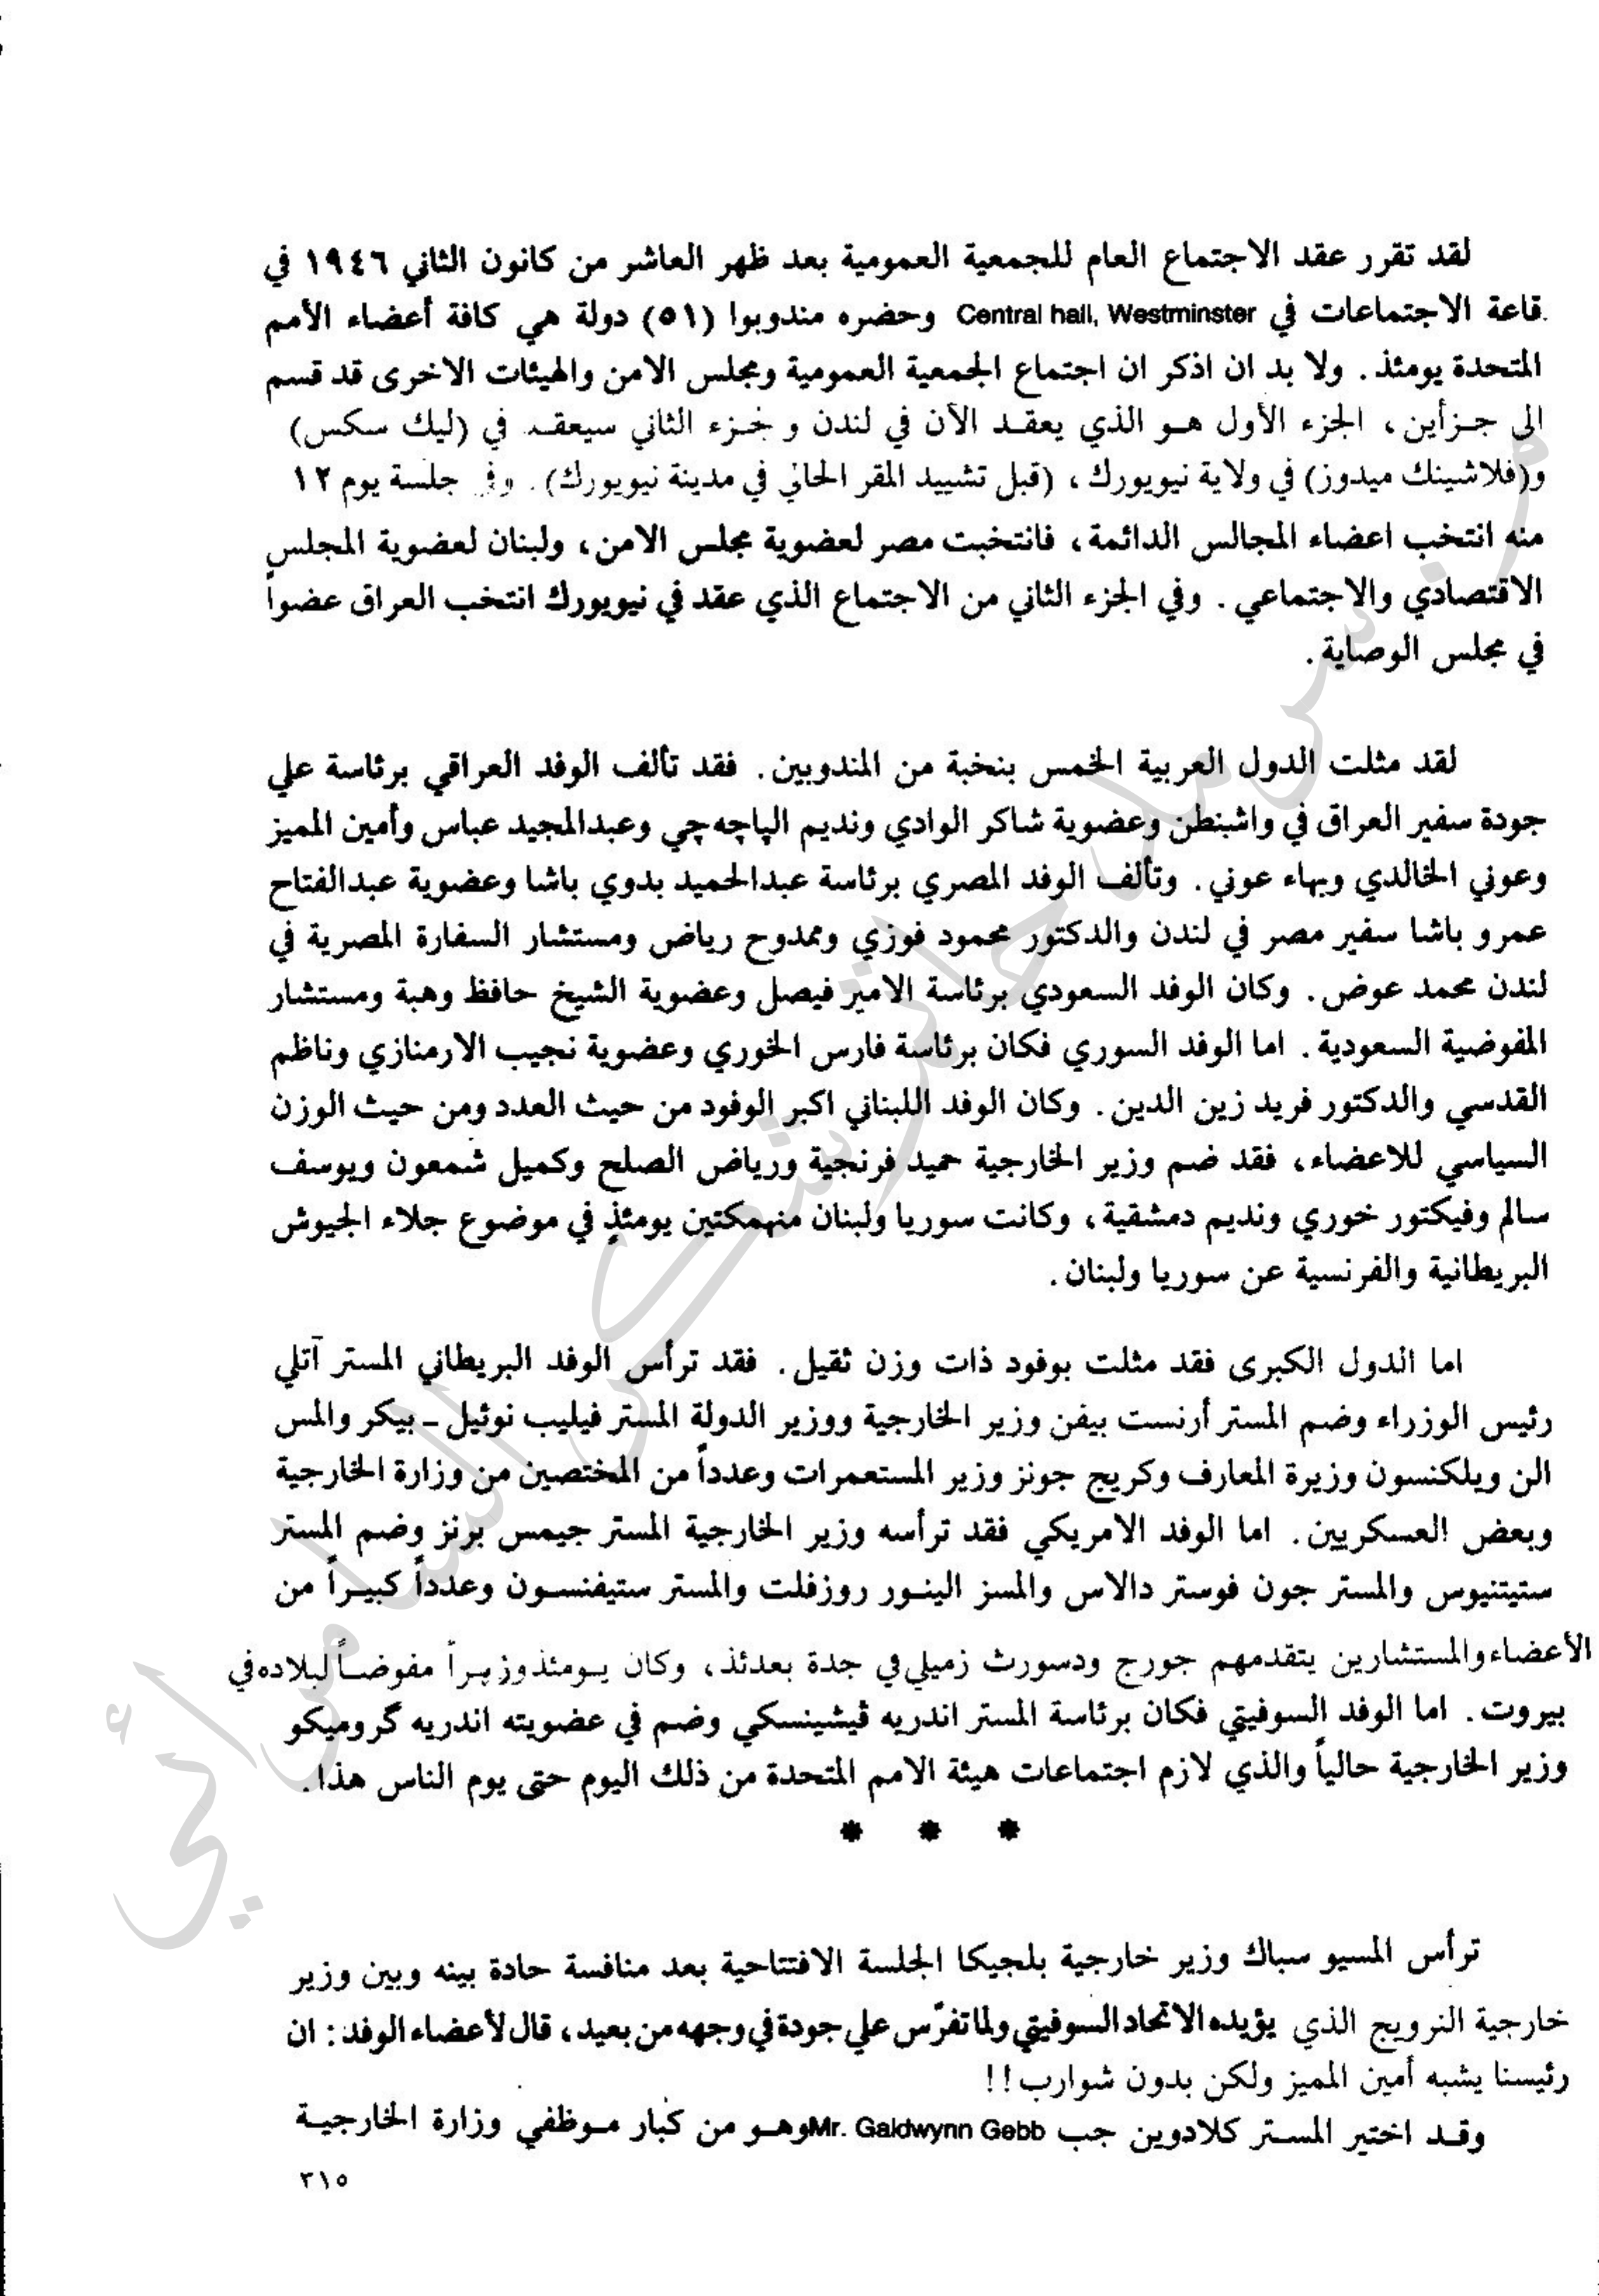 لقد تقرر عقد الاجتماع العام للجمعية العمومية بعد ظهر العاشر من كانون الثاني ١٩٤٦ في
قاعة الاجتماعات في Central hall, Westminster وحضره مندوبوا (٥١) دولة هي كافة أعضاء الأمم
المتحدة يومئذ. ولا بد ان اذكر ان اجتماع الجمعية العمومية ومجلس الامن والهيئات الاخرى قد قسم
الى جـزأين، الجزء الأول هـو الذي يعقـد الآن في لندن و جـزء الثاني سيعقـد في (ليك سكس)
و(فلاشينك ميدوز) في ولاية نيويورك، (قبل تشييد المقر الحالي في مدينة نيويورك). وفي جلسة يوم ١٢
منه انتخب اعضاء المجالس الدائمة، فانتخبت مصر لعضوية مجلس الامن، ولبنان لعضوية المجلس
الاقتصادي والاجتماعي. وفي الجزء الثاني من الاجتماع الذي عقد في نيويورك انتخب العراق عضواً
في مجلس الوصاية.
لقد مثلت الدول العربية الخمس بنخبة من المندوبين. فقد تألف الوفد العراقي برئاسة علي
جودة سفير العراق في واشبنطن وعضوية شاكر الوادي ونديم الپاچه‌چي وعبدالمجيد عباس وأمين المميز
وعوني الخالدي وبهاء عوني. وتألف الوفد المصري برئاسة عبدالحميد بدوي باشا وعضوية عبدالفتاح
عمرو باشا سفير مصر في لندن والدكتور محمود فوزي وممدوح رياض ومستشار السفارة المصرية في
لندن محمد عوض. وكان الوفد السعودي برئاسة الامير فيصل وعضوية الشيخ حافظ وهبة ومستشار
المفوضية السعودية. اما الوفد السوري فكان برئاسة فارس الخوري وعضوية نجيب الارمنازي وناظم
القدسي والدكتور فريد زين الدين. وكان الوفد اللبناني اكبر الوفود من حيث العدد ومن حيث الوزن
السياسي للاعضاء، فقد ضم وزير الخارجية حميد فرنجية ورياض الصلح وكميل شمعون ويوسف
سالم وفيكتور خوري ونديم دمشقية، وكانت سوريا ولبنان منهمكتين يومئذٍ في موضوع جلاء الجيوش
البريطانية والفرنسية عن سوريا ولبنان.
اما الدول الكبرى فقد مثلت بوفود ذات وزن ثقيل. فقد ترأس الوفد البريطاني المستر آتلي
رئيس الوزراء وضم المستر أرنست بيفن وزير الخارجية ووزير الدولة المستر فيليب نوئيل ـ بيكر والمس
الن ويلكنسون وزيرة المعارف وكريج جونز وزير المستعمرات وعدداً من المختصين من وزارة الخارجية
وبعض العسكريين. اما الوفد الامريكي فقد ترأسه وزير الخارجية المستر جيمس برنز وضم المستر
ستيتنيوس والمستر جون فوستر دالاس والمسز الينـور روزفلت والمستر ستيفنسـون وعدداً كبيـراً من
الأعضاء والمستشارين يتقدمهم جورج ودسورث زميلي في جدة بعدئذ، وكان يـومئذ وزيـراً مفوضـاً لبلاده في
بيروت. اما الوفد السوفيتي فكان برئاسة المستر اندريه ڤيشينسكي وضم في عضويته اندريه گروميكو
وزير الخارجية حالياً والذي لازم اجتماعات هيئة الامم المتحدة من ذلك اليوم حتى يوم الناس هذا.
* * *
ترأس المسيو سباك وزير خارجية بلجيكا الجلسة الافتتاحية بعد منافسة حادة بينه وبين وزير
خارجية النرويج الذي يؤيده الاتحاد السوفيتي ولما تفرّس علي جودة في وجهه من بعيد، قال لأعضاء الوفد: ان
رئيسنا يشبه أمين المميز ولكن بدون شوارب!!
وقـد اختير المسـتر كلادوين جب Mr. Galdwynn Gebb وهـو من كبار مـوظفي وزارة الخارجيـة
٣١٥
من سرمد حاتم شكر السامرائي